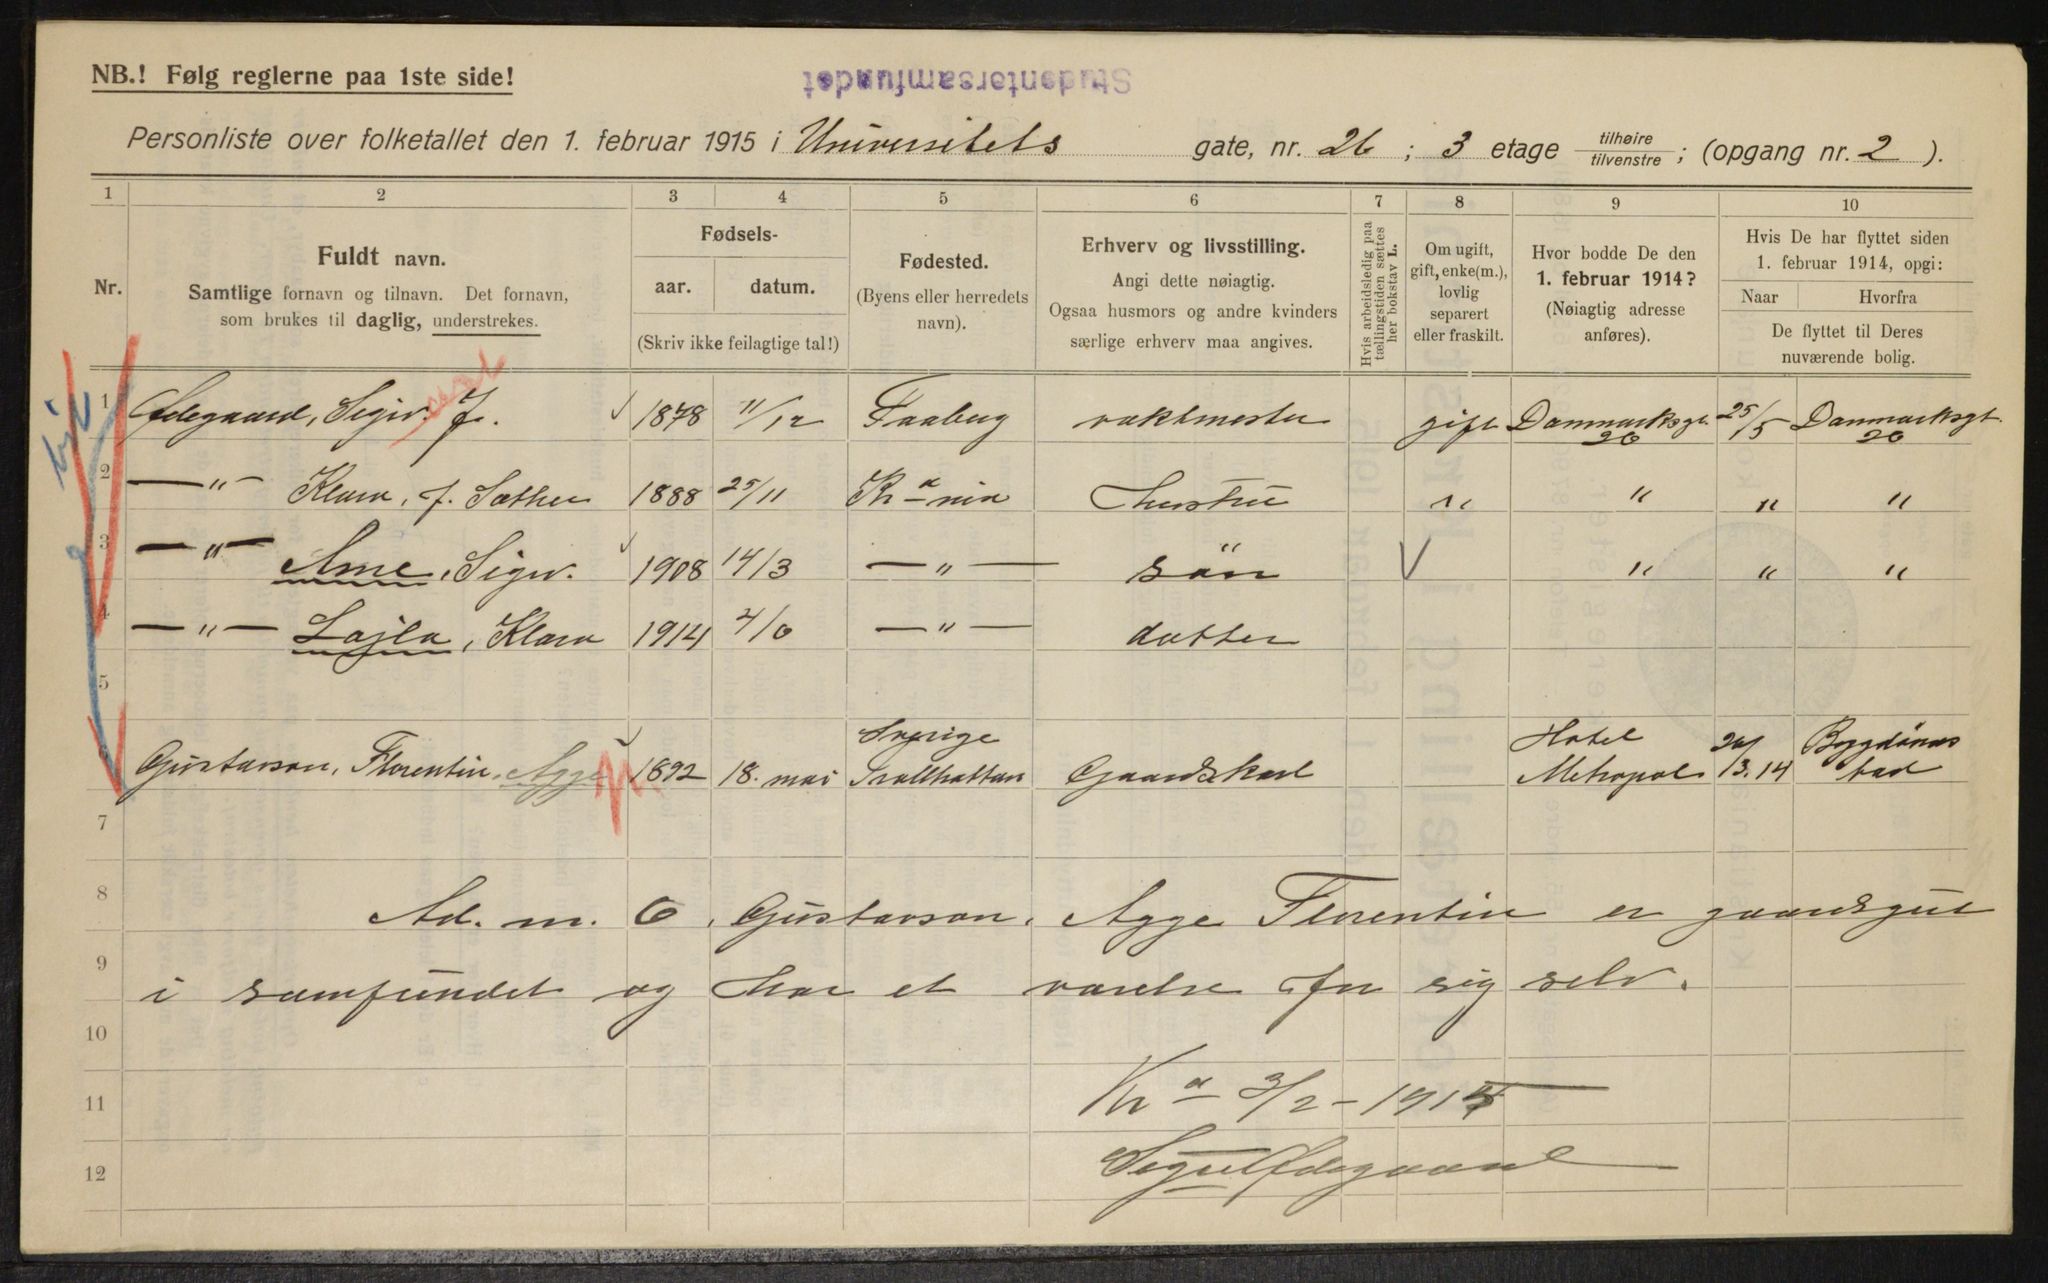 NB.! Følg reglerne paa 1ste side!
Studentersamfundet
Personliste over folketallet den 1. februar 1915 i Universitets gate, nr. 26 ; 3 etage tilhøire/tilvenstre ; (opgang nr. 2 ).
1 2 3 4 5 6 7 8 9 10
Nr.
Fuldt navn.
Samtlige fornavn og tilnavn. Det fornavn,
som brukes til daglig, understrekes.
Fødsels-
aar. datum.
(Skriv ikke feilagtige tal!)
Fødested.
(Byens eller herredets
navn).
Erhverv og livsstilling.
Angi dette nøiagtig.
Ogsaa husmors og andre kvinders
særlige erhverv maa angives.
Hvis arbeidsledig paa
tællingstiden sættes
her bokstav L.
Om ugift,
gift, enke(m.),
lovlig
separert
eller fraskilt.
Hvor bodde De den
1. februar 1914?
(Nøiagtig adresse
anføres).
Hvis De har flyttet siden
1. februar 1914, opgi:
Naar Hvorfra
De flyttet til Deres
nuværende bolig.
1 Ødegaard, Sigv. J. 1878 11/12 Faaberg vaktmester gift Danmarksgt. 26 25/5 Danmarksgt. 26
2 —"— Klara, f. Sæther 1888 25/11 Kr a nia hustru " " " "
3 —"— Arne, Sigv. 1908 14/3 —"— søn " " "
4 —"— Lajla, Klara 1914 4/6 —"— datter
5
6 Gustavson, Florentin, Agge 1892 18. mai Sverige Trollhattan Gaardskarl Hotel Metropol 13.14 Bygdönes bad
7
8 Ad. m. 6. Gustavson, Agge Florentin er gaardsgut
9 i samfundet og har et værelse for sig selv.
10
11 Kr a 3/2 – 1915
12 Sigv Ødegaard